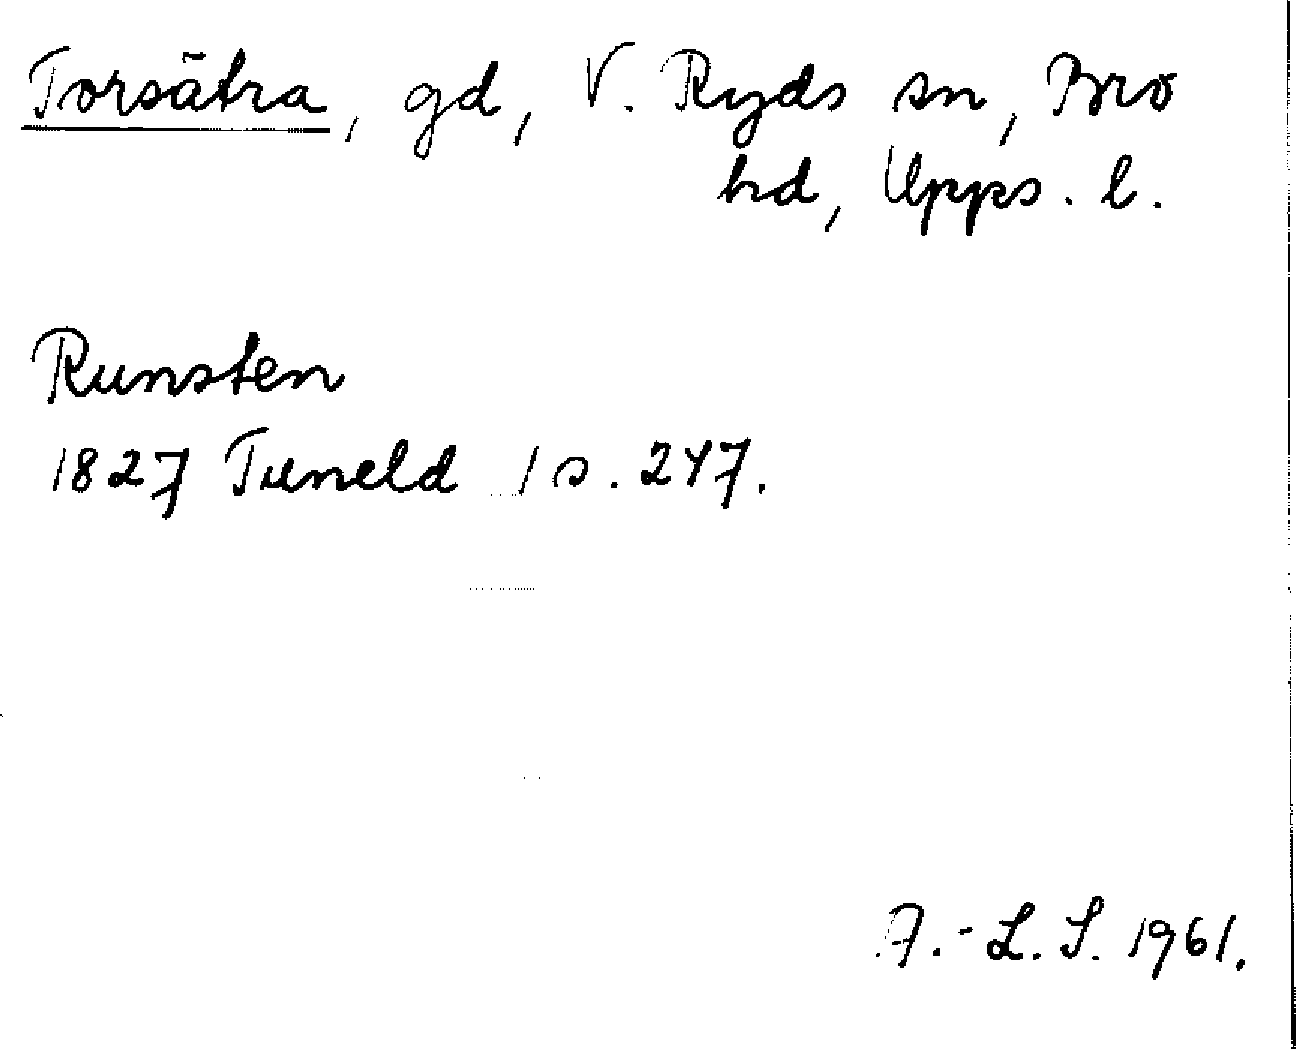 Torsätra, gd, V. Ryds sn, Bro
hd, Upps. l.
Runsten
1827 Tuneld 1 s. 247.
A.-L. S. 1961.